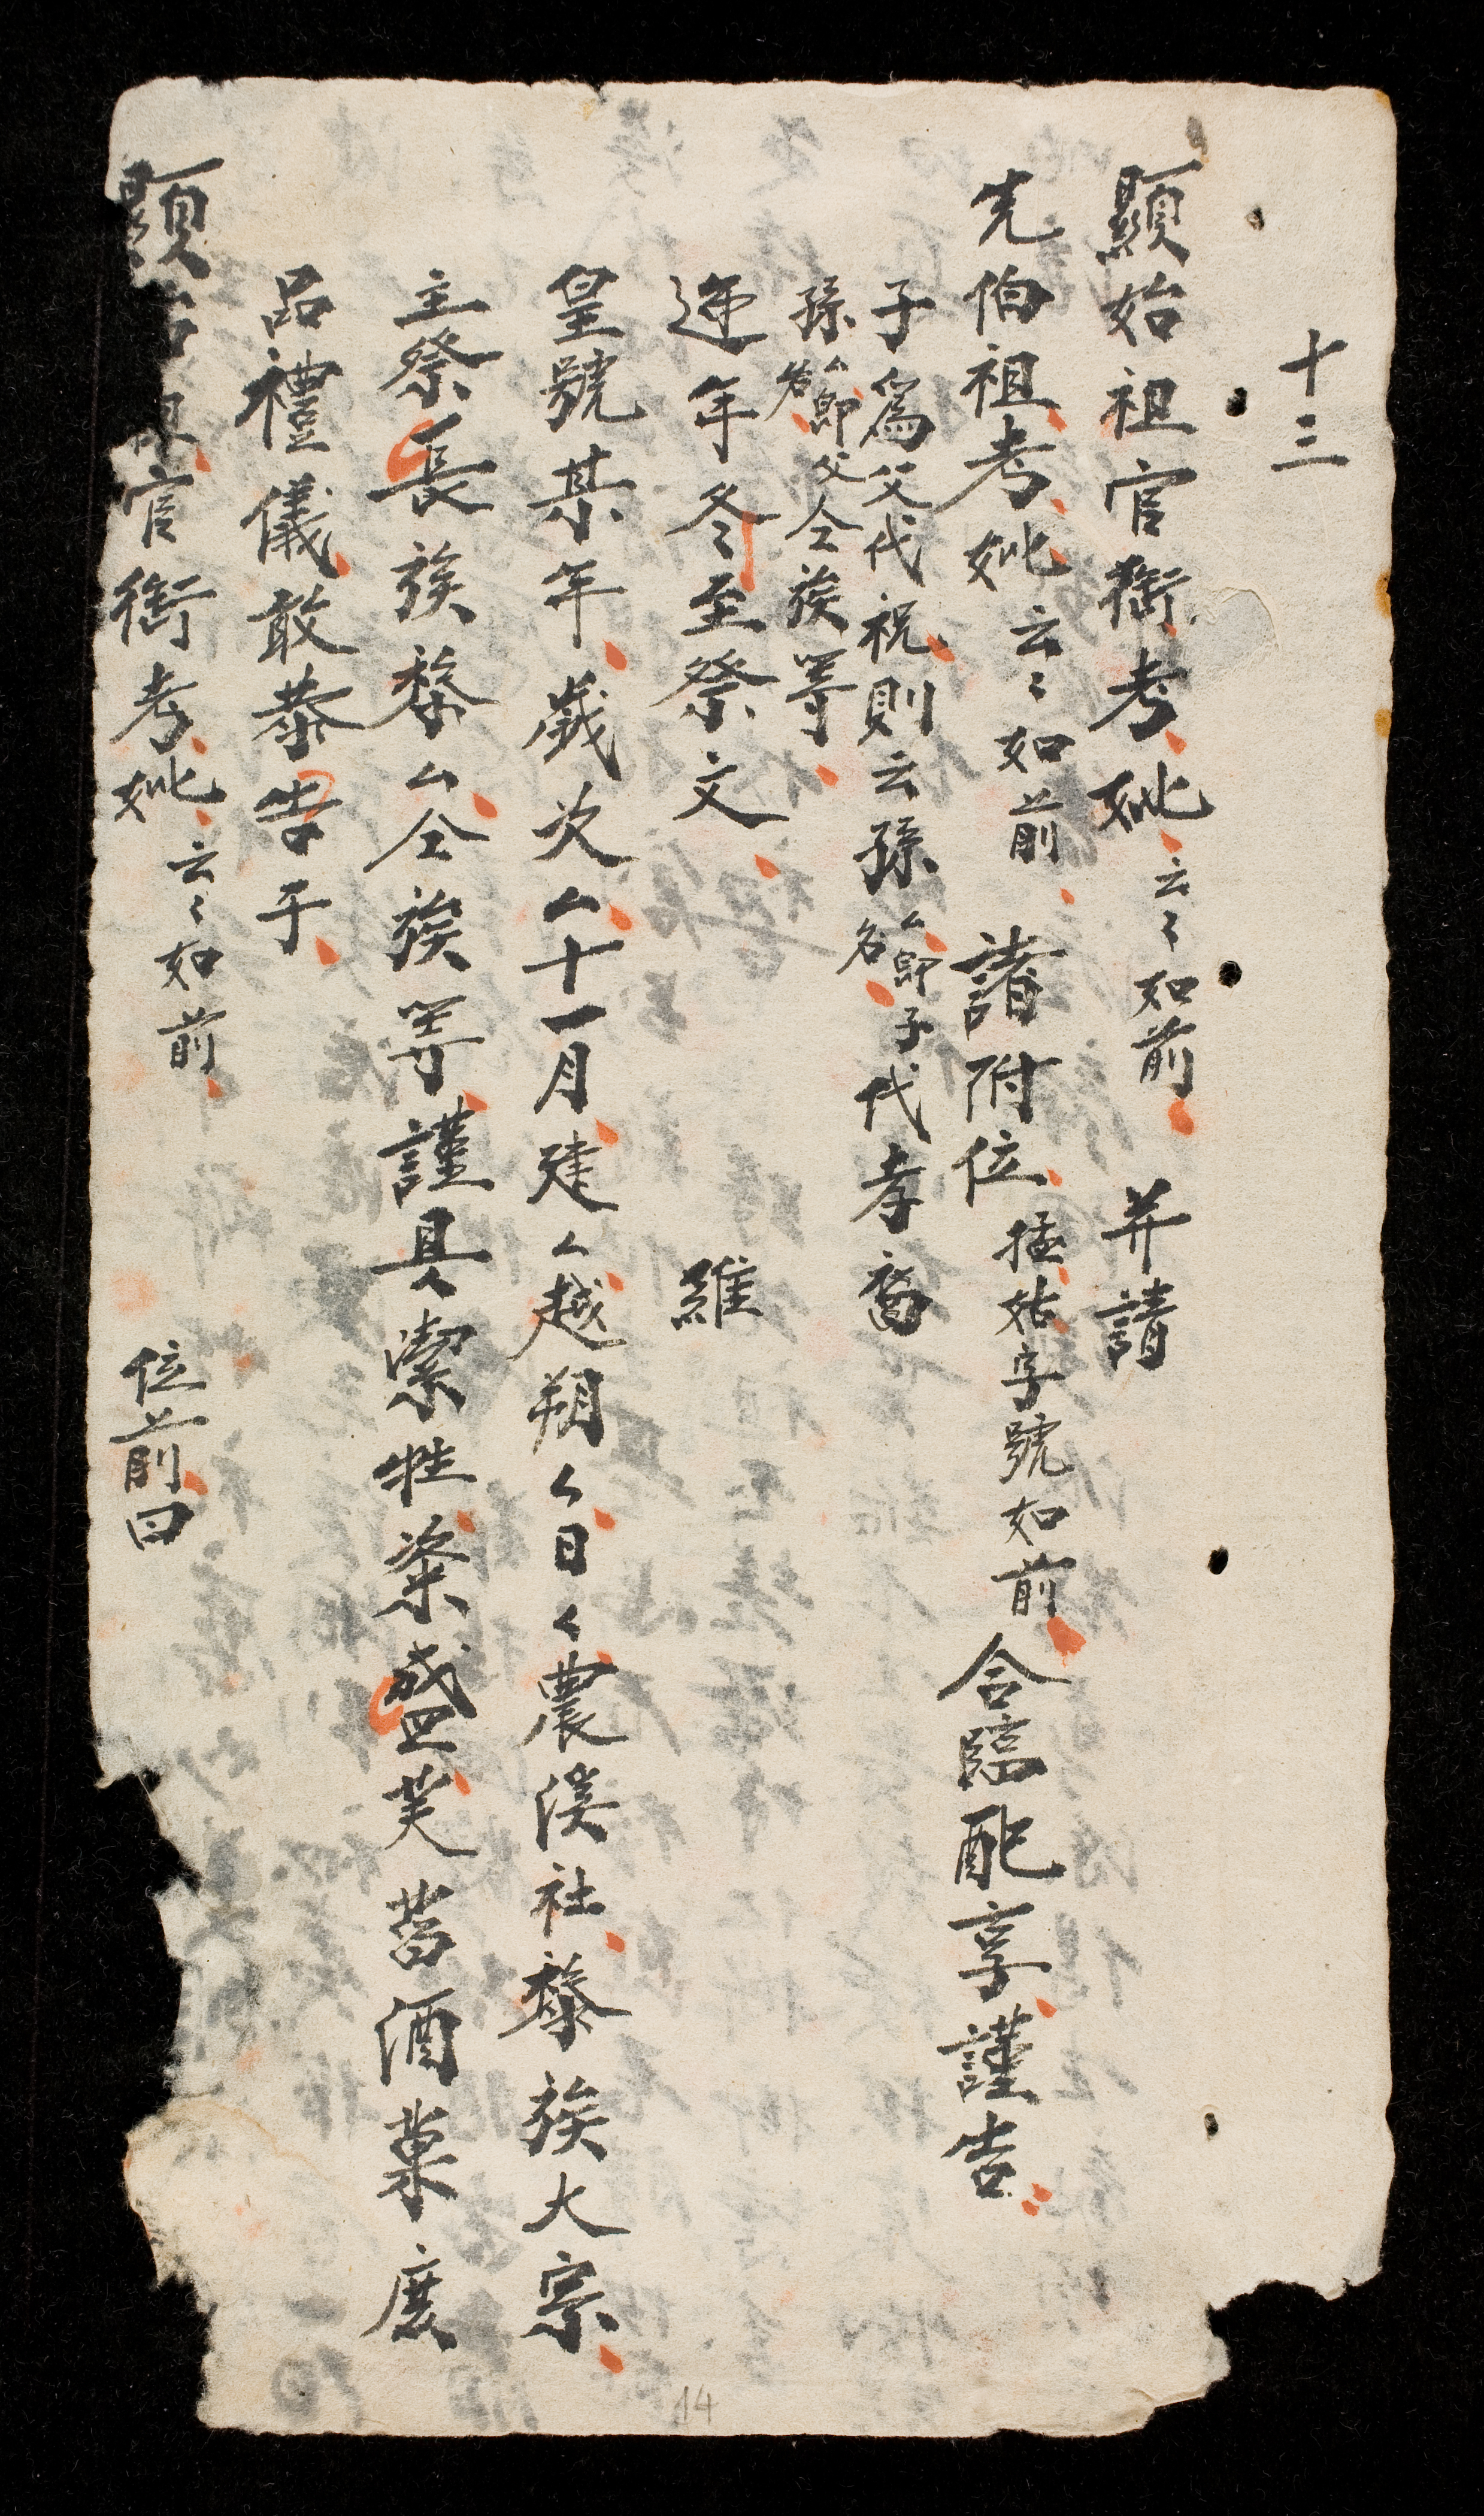 十三
顯始祖官銜考妣云〻如前 并請
先伯祖考妣云〻如前 諸附位猛姑字號如前合臨配享謹告
子爲父代祝則云孫厶郎名子代孝裔
孫厶郎名父仝族等
递年冬至祭文 維
皇號某年歲次厶十一月建厶越朔厶日厶農溪社黎族大宗
主祭長族黎厶仝族等謹具潔牲粢盛芙菖酒菓庶
品禮儀敢恭告于
顯始祖官銜考妣云〻如前 位前曰
14